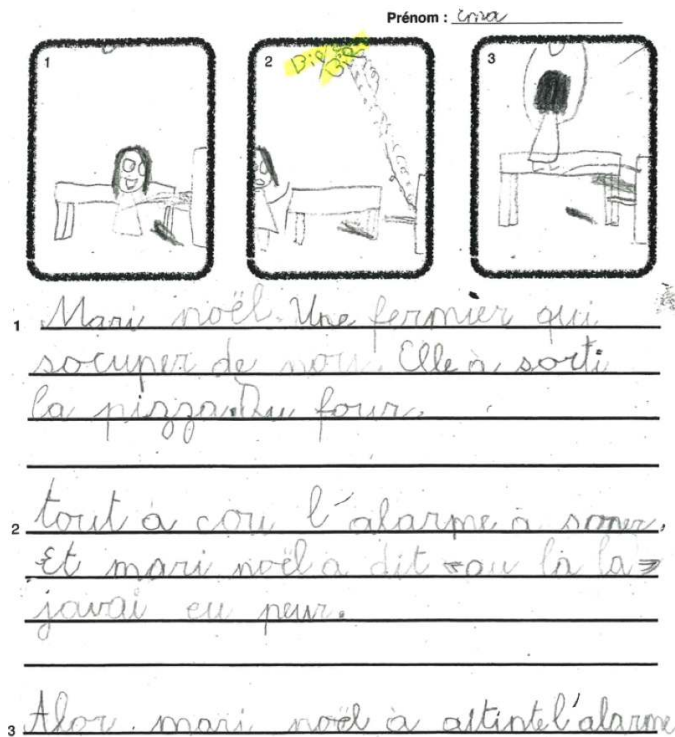 Prénom : Ema
1
2
Bip Bip
3
1 Mari noël. Une fermier qui
socuper de nou. Elle à sorti
la pizza. Du four.
2 tout à cou l'alarme à soner,
Et mari noël à dit « ou là la »
javai eu peur.
3 Alor mari noël à attinte l'alarme